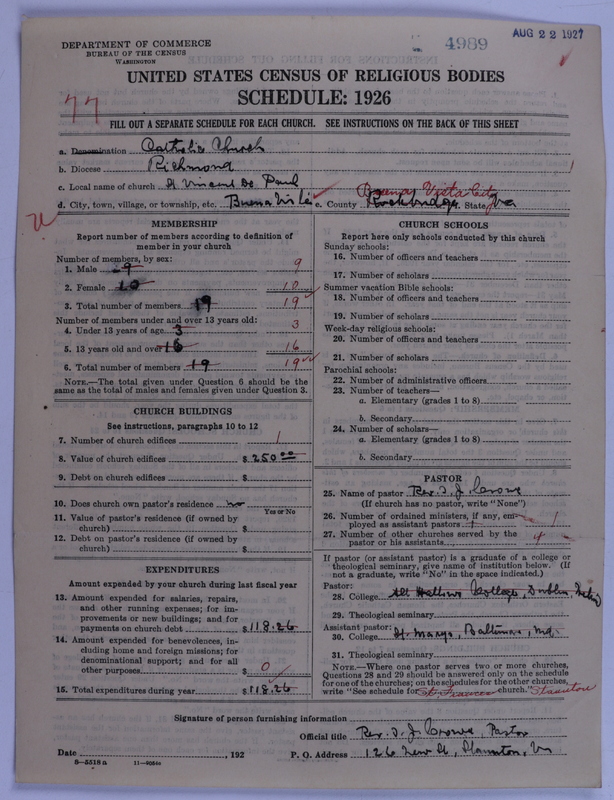 DEPARTMENT OF COMMERCE
BUREAU OF THE CENSUS
WASHINGTON
4989
AUG 22 1927
UNITED STATES CENSUS OF RELIGIOUS BODIES
SCHEDULE: 1926
77
FILL OUT A SEPARATE SCHEDULE FOR EACH CHURCH. SEE INSTRUCTIONS ON THE BACK OF THIS SHEET
a. Denomination Catholic Church
b. Diocese Richmond 1
c. Local name of church St Vincent De Paul
Buena Vista City
d. City, town, village, or township, etc. Buena Vista e. County Rockbridge f. State Va
MEMBERSHIP
Report number of members according to definition of member in your church
Number of members, by sex:
1. Male 9 9
2. Female 10 10
3. Total number of members 19 19
Number of members under and over 13 years old:
4. Under 13 years of age 3 3
5. 13 years old and over 16 16
6. Total number of members 19 19
NOTE.—The total given under Question 6 should be the same as the total of males and females given under Question 3.
CHURCH BUILDINGS
See instructions, paragraphs 10 to 12
7. Number of church edifices 1
8. Value of church edifices $ 250.00
9. Debt on church edifices $
10. Does church own pastor's residence no
Yes or No
11. Value of pastor's residence (if owned by church) $
12. Debt on pastor's residence (if owned by church) $
EXPENDITURES
Amount expended by your church during last fiscal year
13. Amount expended for salaries, repairs, and other running expenses; for improvements or new buildings; and for payments on church debt $ 118.26
14. Amount expended for benevolences, including home and foreign missions; for denominational support; and for all other purposes $ 0
15. Total expenditures during year $ 118.26
CHURCH SCHOOLS
Report here only schools conducted by this church
Sunday schools:
16. Number of officers and teachers
17. Number of scholars
Summer vacation Bible schools:
18. Number of officers and teachers
19. Number of scholars
Week-day religious schools:
20. Number of officers and teachers
21. Number of scholars
Parochial schools:
22. Number of administrative officers
23. Number of teachers—
a. Elementary (grades 1 to 8)
b. Secondary
24. Number of scholars—
a. Elementary (grades 1 to 8)
b. Secondary
PASTOR
25. Name of pastor Rev. T. J. Crowe
(If church has no pastor, write "None")
26. Number of ordained ministers, if any, employed as assistant pastors 1 1
27. Number of other churches served by the pastor or his assistants 4
If pastor (or assistant pastor) is a graduate of a college or theological seminary, give name of institution below. (If not a graduate, write "No" in the space indicated.)
Pastor:
28. College All Hallows College, Dublin, Ireland
29. Theological seminary
Assistant pastor:
30. College St. Marys, Baltimore, Md.
31. Theological seminary
NOTE.—Where one pastor serves two or more churches, Questions 28 and 29 should be answered only on the schedule for one of the churches; on the schedules for the other churches, write "See schedule for St. Francis church." Staunton
Signature of person furnishing information
Official title Rev. T. J. Crowe, Pastor
Date , 192 P. O. Address 126 New St, Staunton, Va
8—5518 a 11—9056a